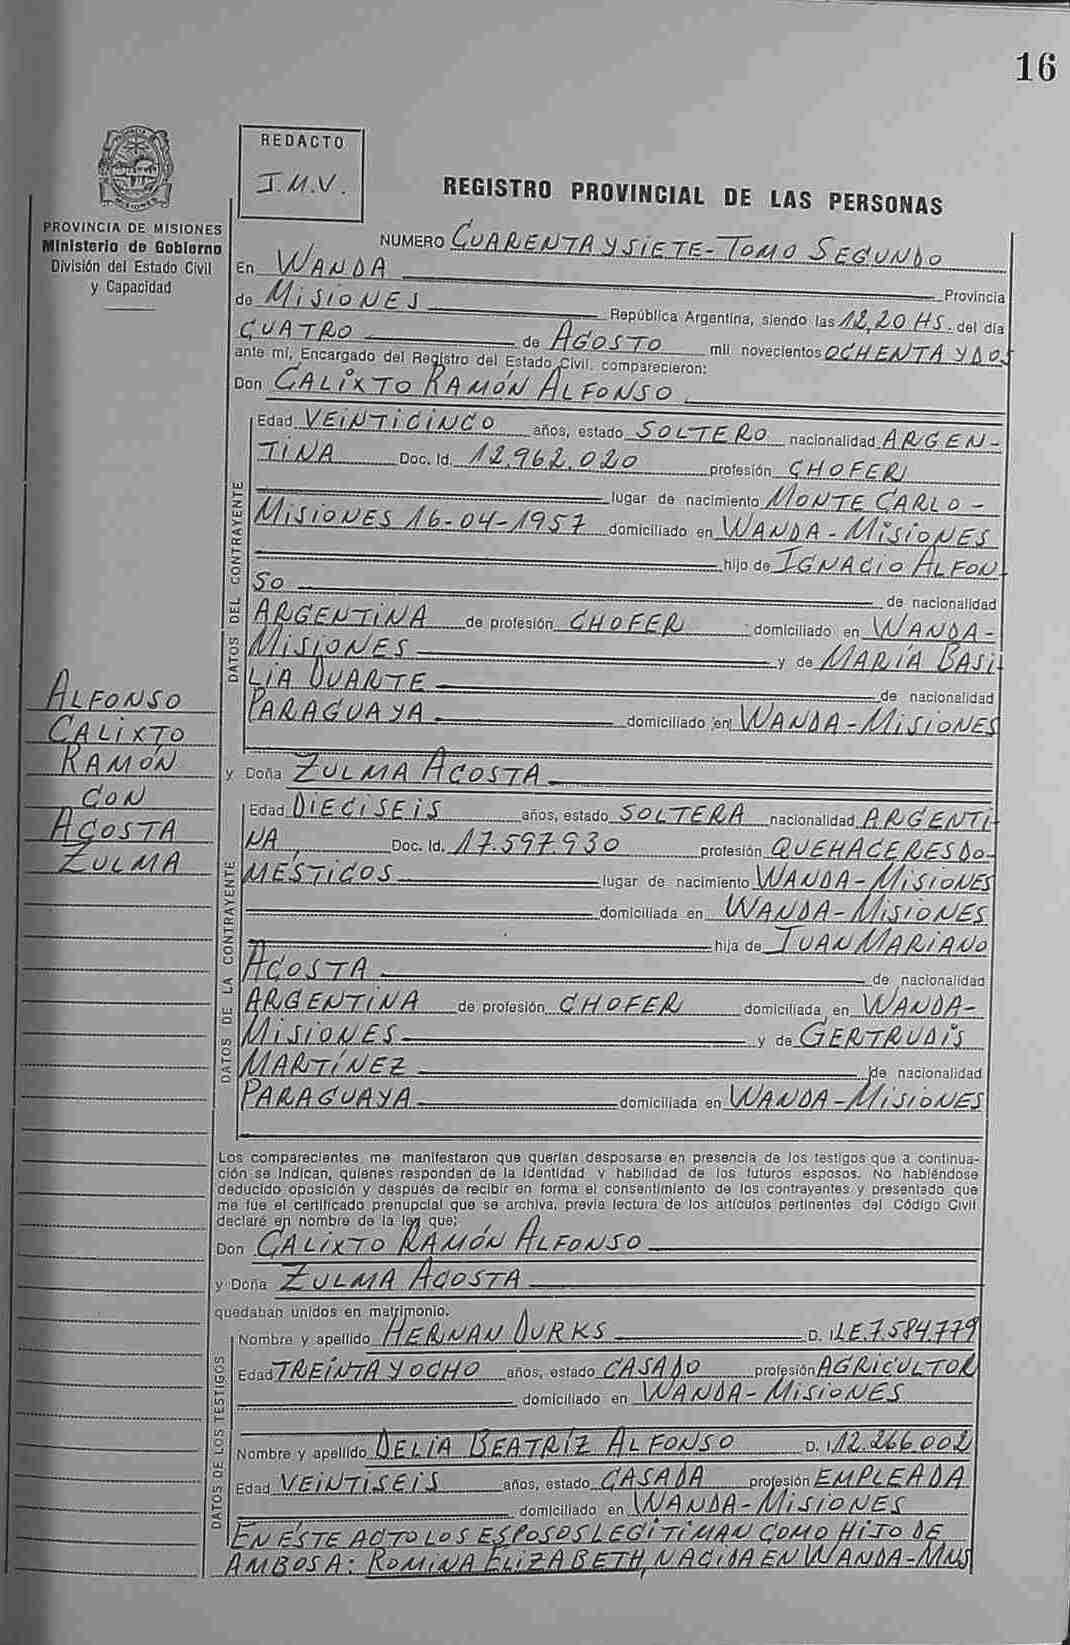 16
REDACTO
I.M.V.
REGISTRO PROVINCIAL DE LAS PERSONAS
PROVINCIA DE MISIONES
Ministerio de Gobierno
División del Estado Civil
y Capacidad
NUMERO CUARENTA Y SIETE - TOMO SEGUNDO
En WANDA Provincia
de MISIONES República Argentina, siendo las 12,20 HS. del día
CUATRO de AGOSTO mil novecientos OCHENTA Y DOS
ante mí, Encargado del Registro del Estado Civil, comparecieron:
Don CALIXTO RAMÓN ALFONSO
DATOS DEL CONTRAYENTE
Edad VEINTICINCO años, estado SOLTERO nacionalidad ARGEN-
TINA Doc. Id. 12.962.020 profesión CHOFER
lugar de nacimiento MONTE CARLO -
MISIONES 16-04-1957 domiciliado en WANDA - MISIONES
hijo de IGNACIO ALFON
SO de nacionalidad
ARGENTINA de profesión CHOFER domiciliado en WANDA -
MISIONES y de MARÍA BASI
LIA DUARTE de nacionalidad
PARAGUAYA domiciliado en WANDA - MISIONES
ALFONSO
CALIXTO
RAMÓN
CON
ACOSTA
ZULMA
y Doña ZULMA ACOSTA
DATOS DE LA CONTRAYENTE
Edad DIECISEIS años, estado SOLTERA nacionalidad ARGENTI
NA Doc. Id. 17.597.930 profesión QUEHACERES DO-
MÉSTICOS lugar de nacimiento WANDA - MISIONES
domiciliada en WANDA - MISIONES
hija de JUAN MARIANO
ACOSTA de nacionalidad
ARGENTINA de profesión CHOFER domiciliada en WANDA -
MISIONES y de GERTRUDIS
MARTÍNEZ de nacionalidad
PARAGUAYA domiciliada en WANDA - MISIONES
Los comparecientes, me manifestaron que querían desposarse en presencia de los testigos que a continua-
ción se indican, quienes responden de la identidad y habilidad de los futuros esposos. No habiéndose
deducido oposición y después de recibir en forma el consentimiento de los contrayentes y presentado que
me fue el certificado prenupcial que se archiva, previa lectura de los artículos pertinentes del Código Civil
declaré en nombre de la ley que:
Don CALIXTO RAMÓN ALFONSO
y Doña ZULMA ACOSTA
quedaban unidos en matrimonio.
DATOS DE LOS TESTIGOS
Nombre y apellido HERNAN DURKS D. I. L.E. 7.584.779
Edad TREINTA Y OCHO años, estado CASADO profesión AGRICULTOR
domiciliado en WANDA - MISIONES
Nombre y apellido DELIA BEATRÍZ ALFONSO D. I. 12.266.002
Edad VEINTISEIS años, estado CASADA profesión EMPLEADA
domiciliado en WANDA - MISIONES
EN ÉSTE ACTO LOS ESPOSOS LEGITIMAN COMO HIJO DE
AMBOSA: ROMINA ELIZABETH, NACIDA EN WANDA - MNS